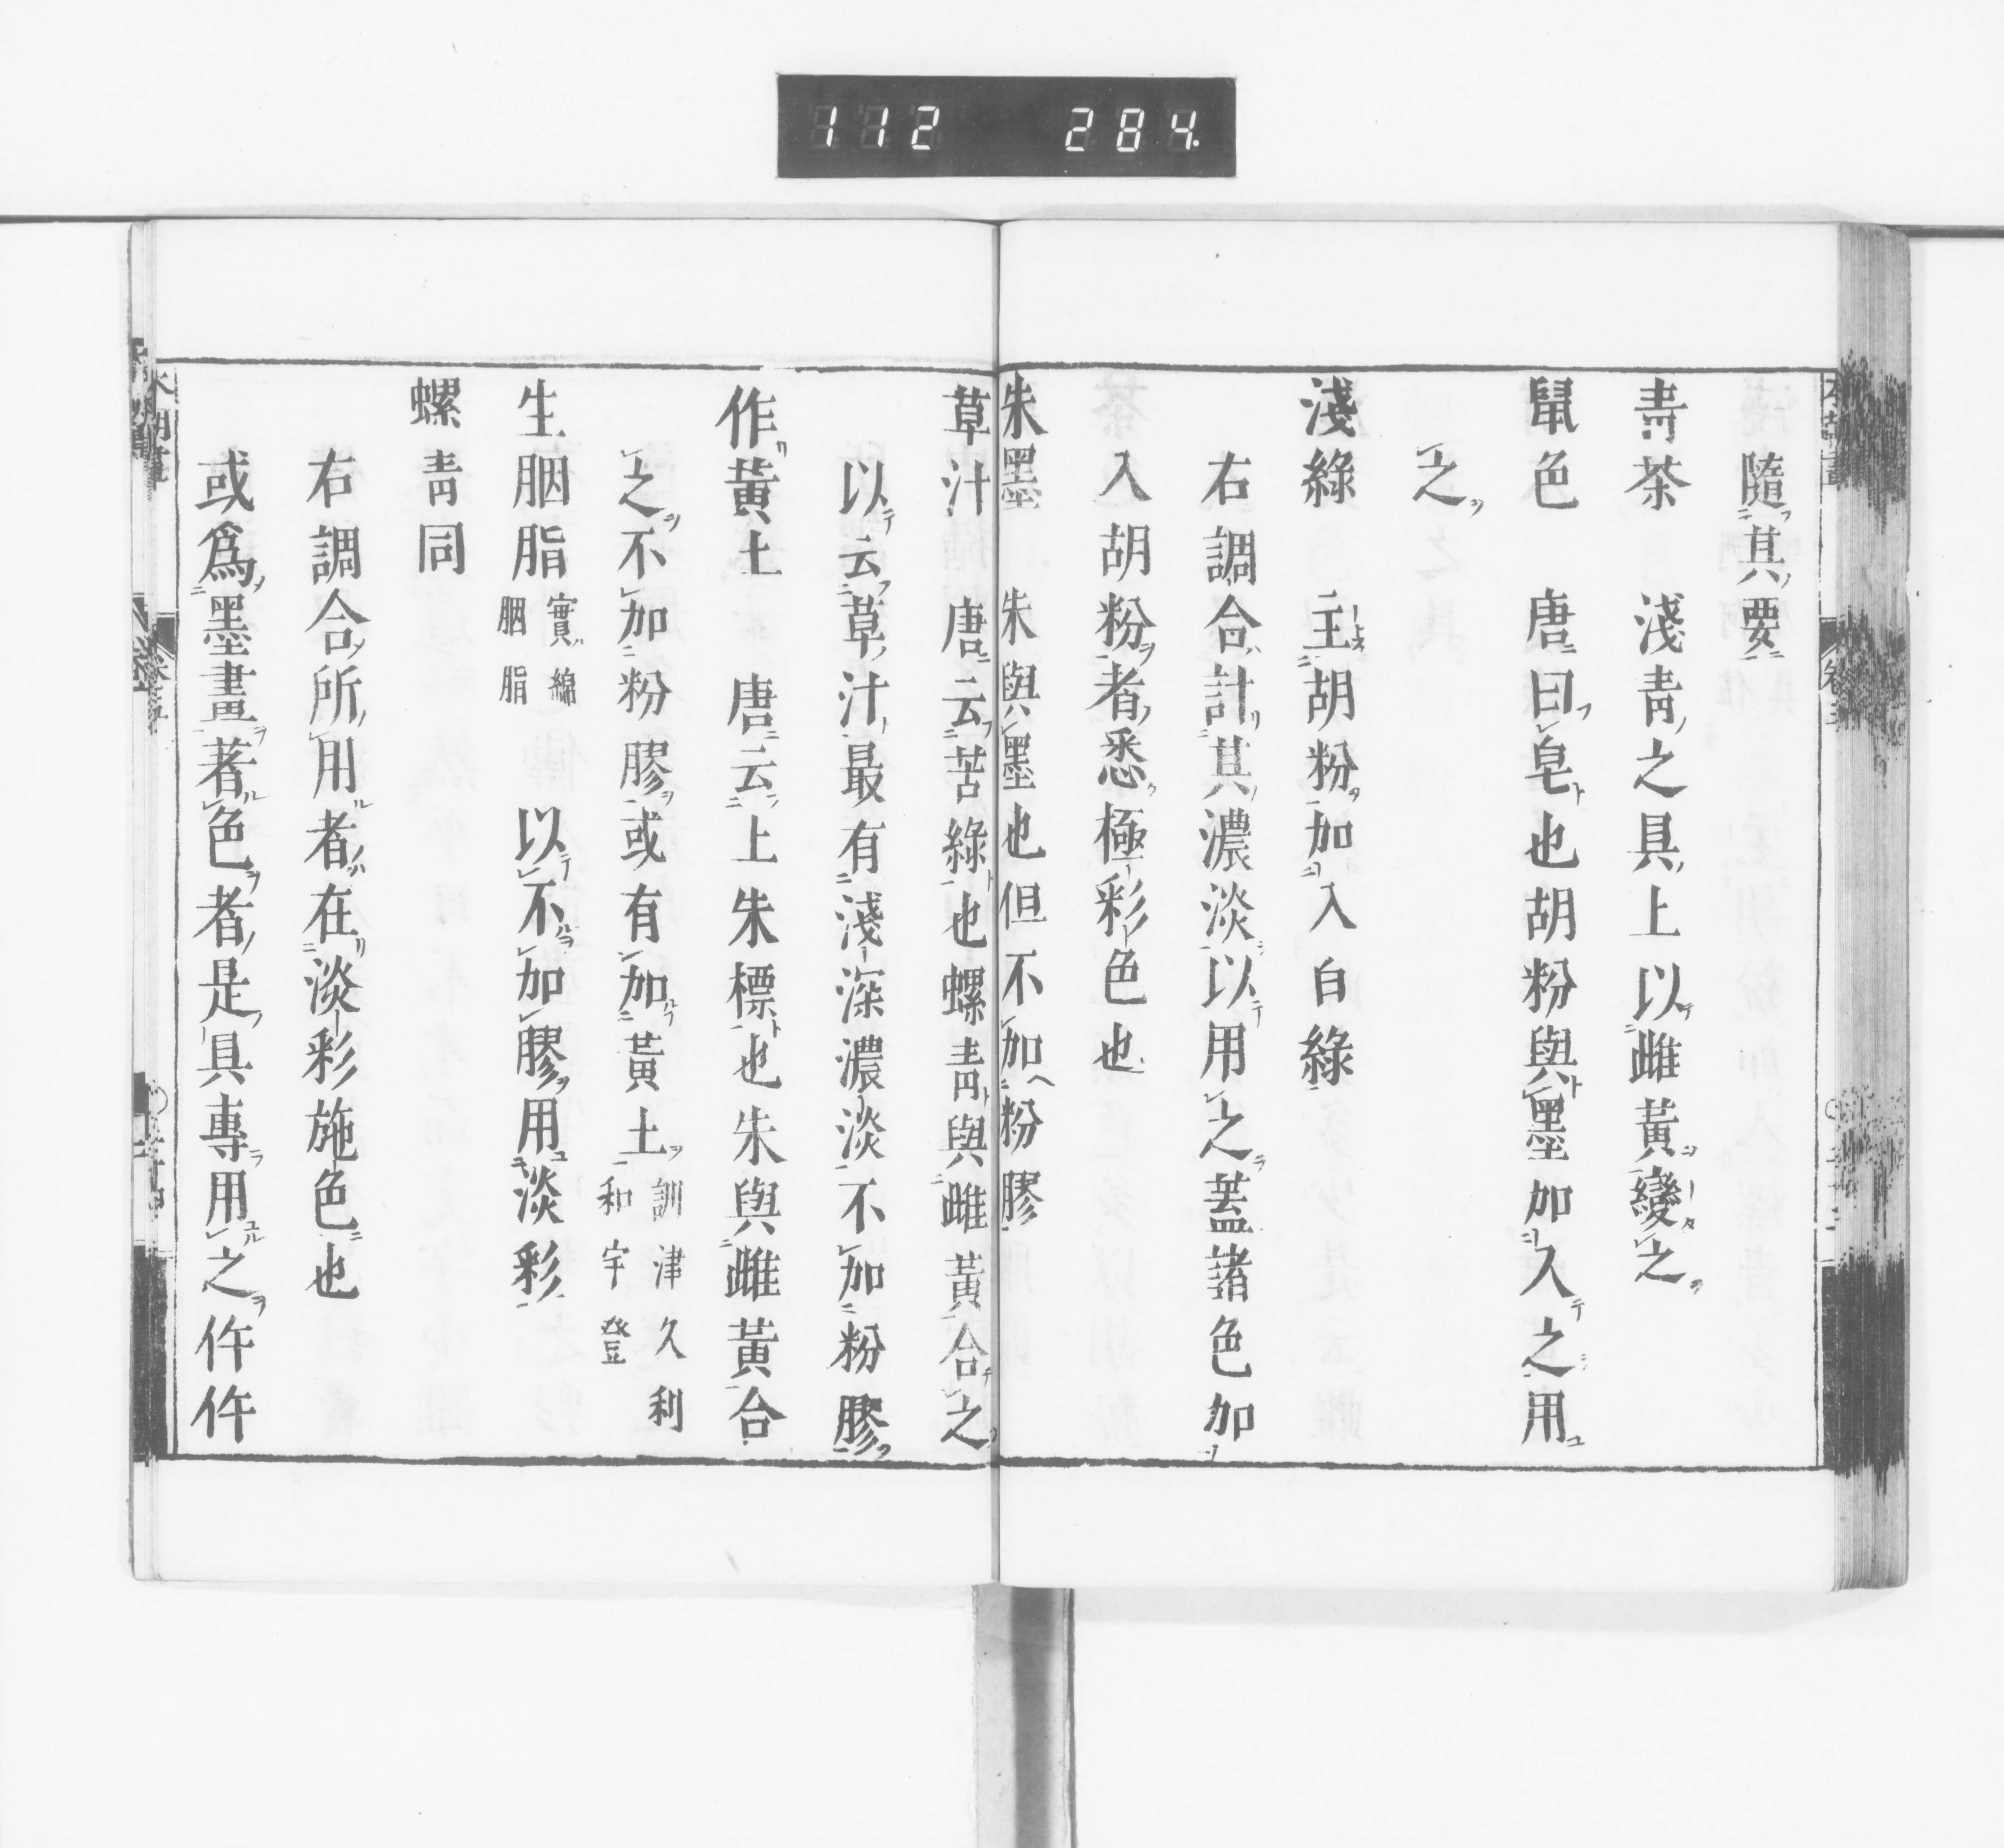 112 284
隨其要
靑茶 淺靑之具上以雌黃變之
鼠色 唐曰皂也胡粉與墨加入之用
之
淺綠 主胡粉加入白綠
右調合計其濃淡以用之蓋諸色加
入胡粉者悉極彩色也
朱墨 朱與墨也但不加粉膠
草汁 唐云苦綠也螺靑與雌黃合之
以云草汁最有淺深濃淡不加粉膠
作黃土 唐云上朱標也朱與雌黃合
之不加粉膠或有加黃土訓津久利
和宇登
生胭脂實綿
胭脂 以不加膠用淡彩
螺靑同
右調合所用者在淡彩施色也
或爲墨畫著色者是具專用之仵仵